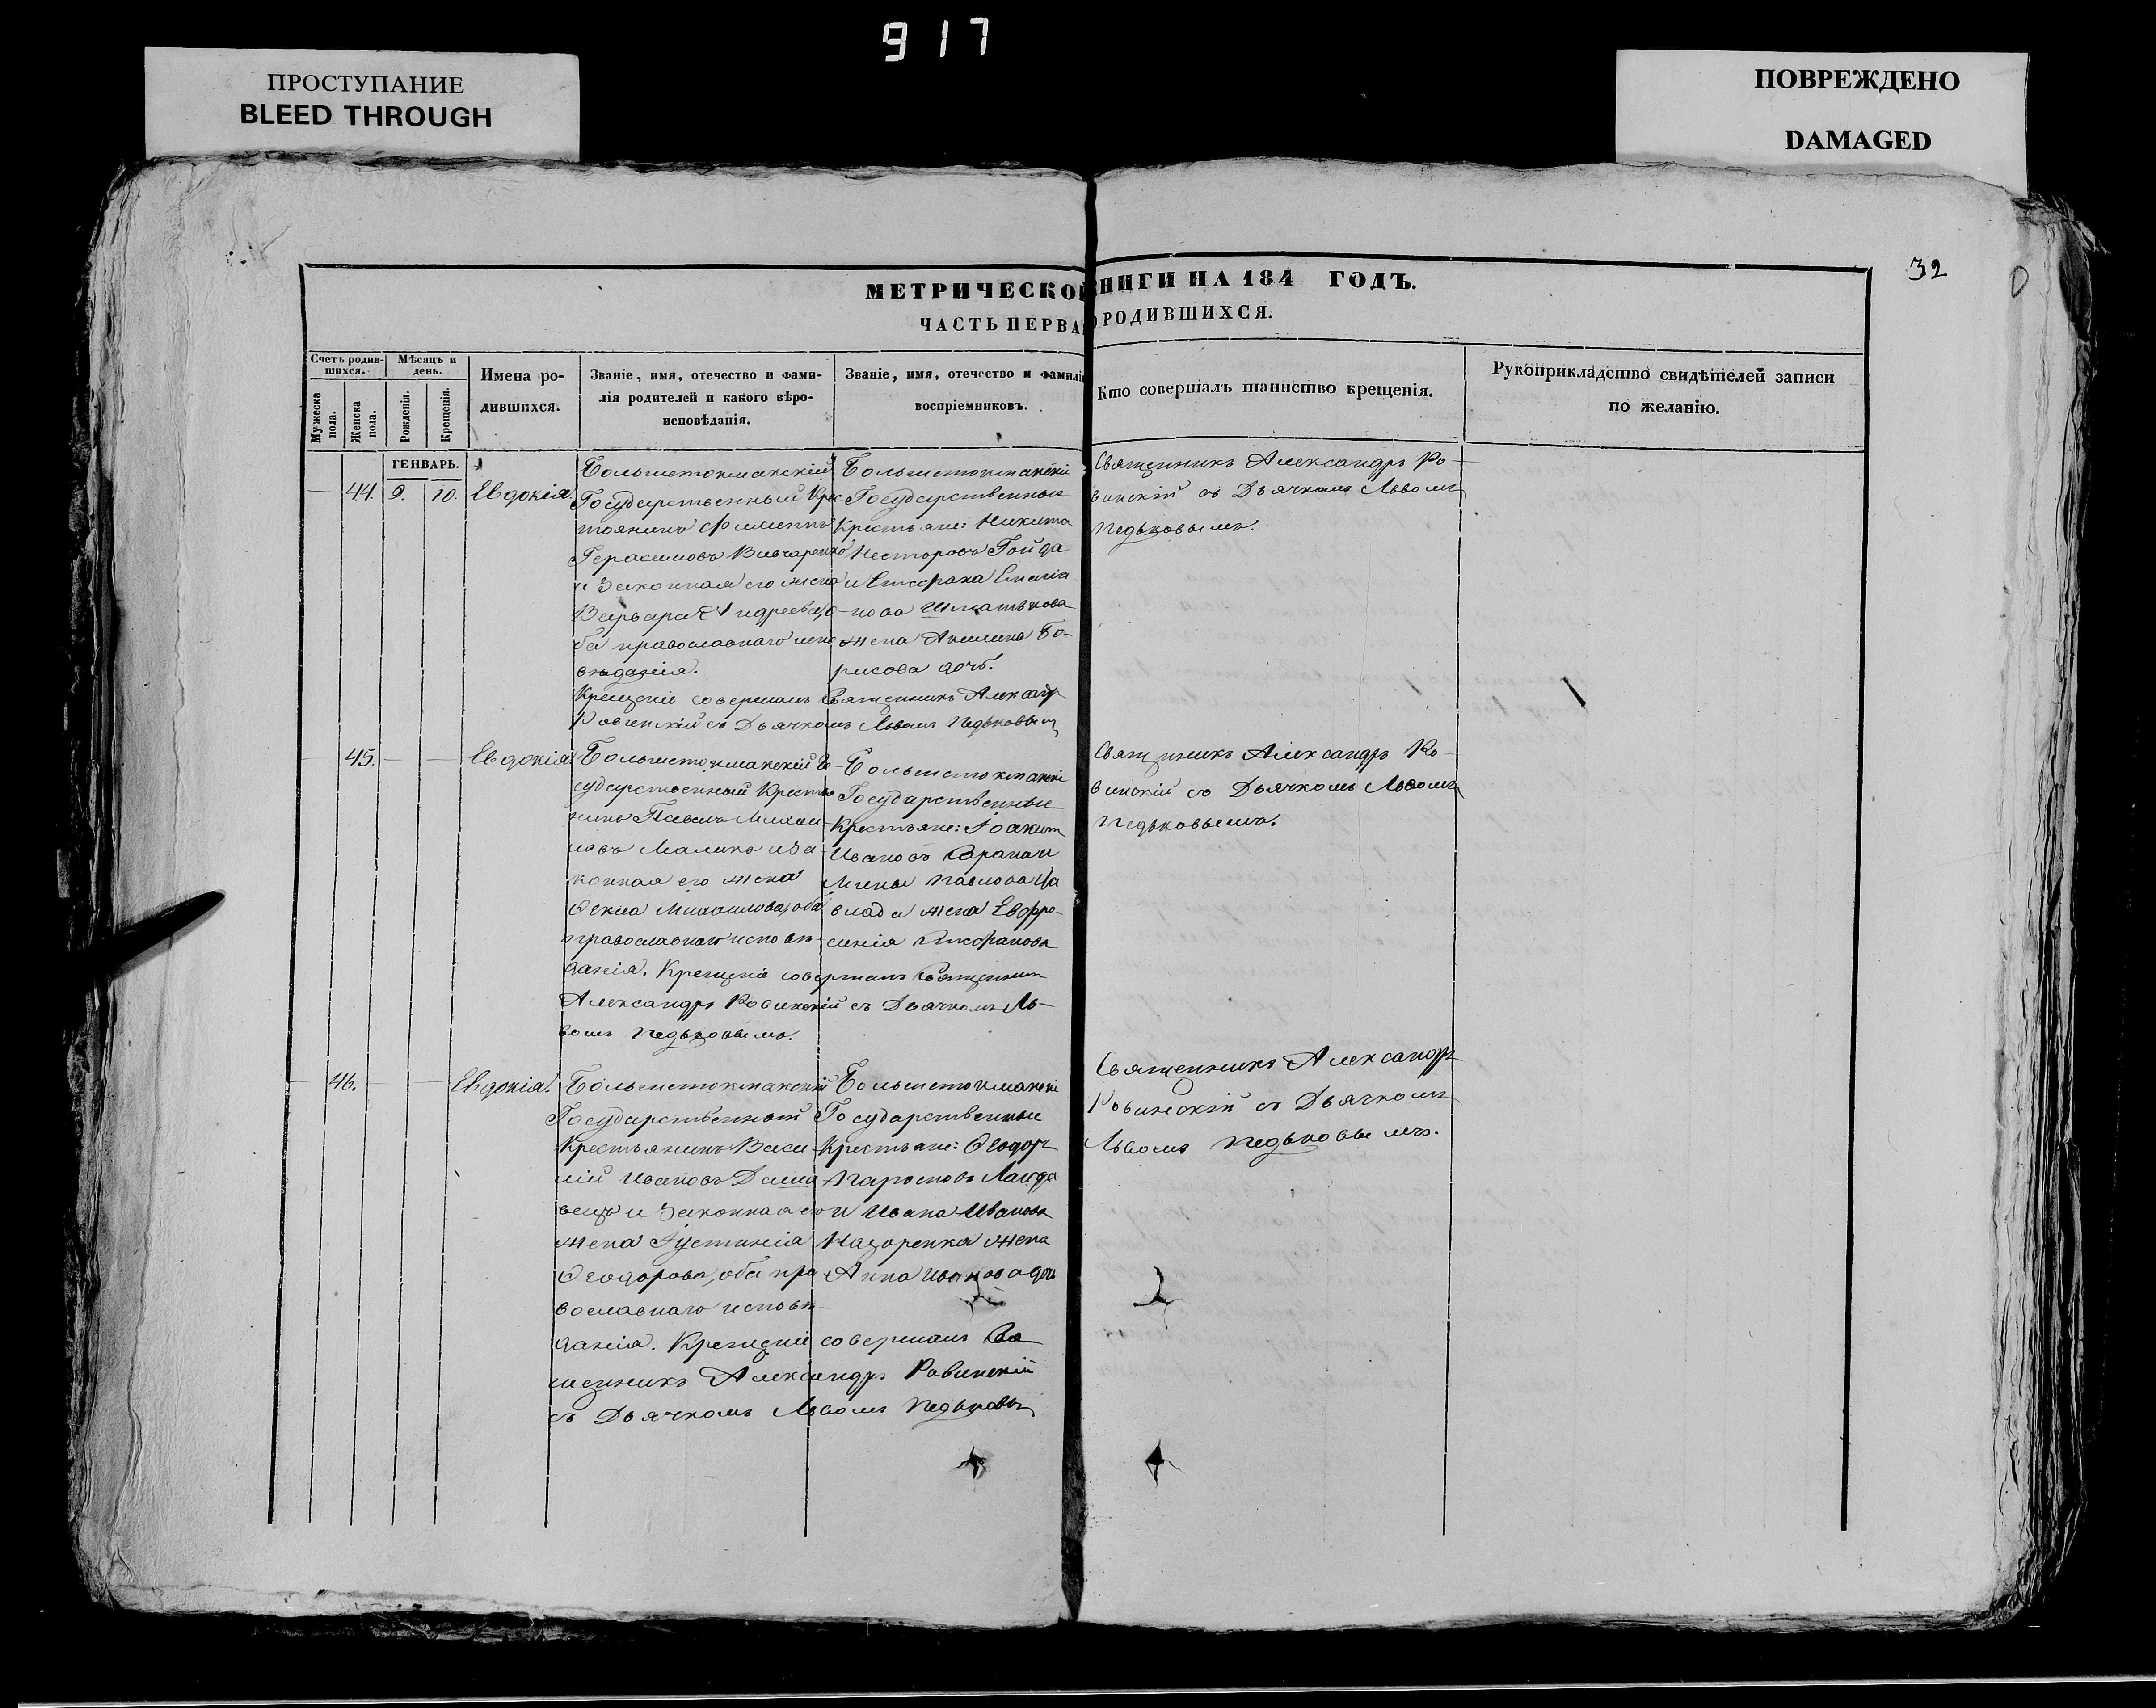 917
ПРОСТУПАНИЕ
BLEED THROUGH
ПОВРЕЖДЕНО
DAMAGED
32
МЕТРИЧЕСКОЙ
НИГИ НА 184 ГОДЪ.
ЧАСТЬ ПЕРВАЯ
О РОДИВШИХСЯ.
Счетъ родив-
шихся.
Мужеска
пола.
Женска
пола.
Мѣсяцъ и
день.
Рожденія.
Крещенія.
Имена ро-
дившихся.
Званіе, имя, отечество и фами-
лія родителей и какого вѣро-
исповѣданія.
Званіе, имя, отечество и фамилія
воспріемниковъ.
Кто совершалъ таинство крещенія.
Рукоприкладство свидѣтелей записи
по желанію.
ГЕНВАРЬ.
44. 9. 10. Евдокія.
Большетокмакскій
Государственный Крес
тоянинъ
Герасимовъ Вивчаренко
и Законная его жена
Варвара Андреева, о-
ба православнаго испо
вѣданія.
Большетокмакскіе
Государственные
Крестьяне: Никита
Несторовъ Гойда
и Стефана
нова Шматькова
жена Акилина Бо-
рисова дочь.
Крещеніе совершалъ Священникъ Александръ
Ровинскій съ Дьячкомъ Львомъ Педьковым
Священникъ Александръ Ро-
винскій съ Дьячкомъ Львомъ
Педьковымъ.
45. Евдокія
Большетокмакскій Го-
сударственный Крестья
нинъ Павелъ Михаи-
ловъ Маликъ и За-
конная его жена
Ѳекла Михаилова, оба
православнаго исповѣ-
данія. Крещеніе совершалъ Священникъ
Александръ Ровинскій съ Дьячкомъ Ль-
вомъ Педьковымъ.
Большетокмакскіе
Государственные
Крестьяне: Іоаким
Ивановъ Саранан
Павлова
влада жена Евфро-
синія Стефанова
Священникъ Александръ Ро-
винскій съ Дьячкомъ Львомъ
Педьковымъ.
46. Евдокія.
Большетокмакскій
Государственный
Крестьянинъ Васи-
лій Ивановъ Даши-
вецъ и Законная его
жена Іустинія
Ѳеодорова, оба пра-
вославнаго исповѣ-
данія. Крещеніе совершалъ Свя
щенникъ Александръ Ровинскій
съ Дьячкомъ Львомъ Педьковы
Большетокмакскіе
Государственные
Крестьяне: Ѳеодоръ
Ланда
и Ивана Иванова
Назоренка жена
Анна Иванова дочь
Священникъ Александръ
Ровинскій съ Дьячкомъ
Львомъ Педьковымъ.